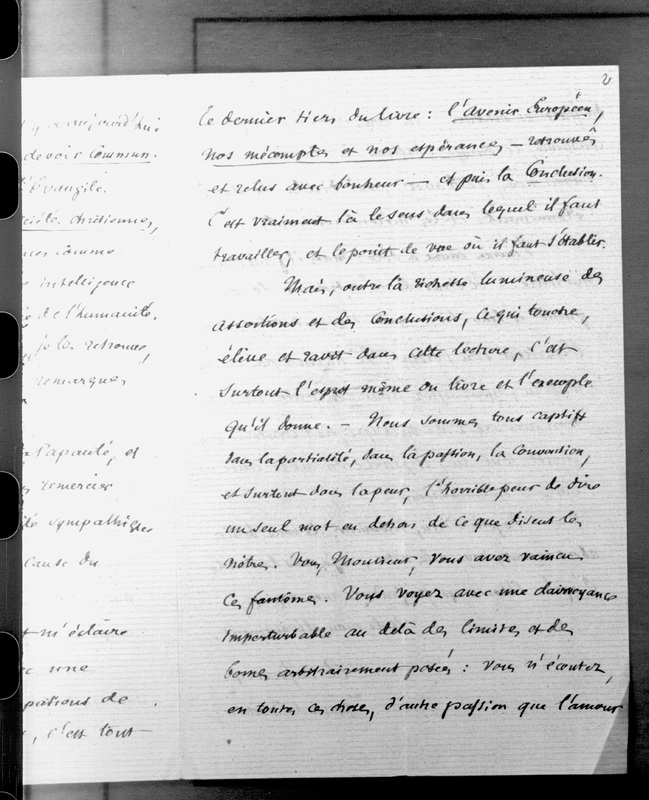 aujourd'hui
devoir commun.
l'Évangile.
chrétienne,
comme
intelligence
de l'humanité.
je les retrouve,
remarques
la Papauté, et
remercier
sympathique
cause du
m'éclaire
une
de
, c'est tout
2
le dernier tiers du livre : l'avenir Européen,
nos mécomptes et nos espérances — retrouvés
et relus avec bonheur — et puis la Conclusion.
C'est vraiment là le sens dans lequel il faut
travailler, et le point de vue où il faut s'établir.
Mais, outre la richesse lumineuse des
assertions et des conclusions, ce qui touche,
élève et ravit dans cette lecture, c'est
surtout l'esprit même du livre et l'exemple
qu'il donne. — Nous sommes tous captifs
dans la partialité, dans la passion, la convention,
et surtout dans la peur, l'horrible peur de dire
un seul mot en dehors de ce que disent les
nôtres. Vous, Monsieur, vous avez vaincu
ces fantômes. Vous voyez avec une clairvoyance
imperturbable au delà des limites et des
bornes arbitrairement posées : vous n'écoutez,
en toutes ces choses, d'autre passion que l'amour